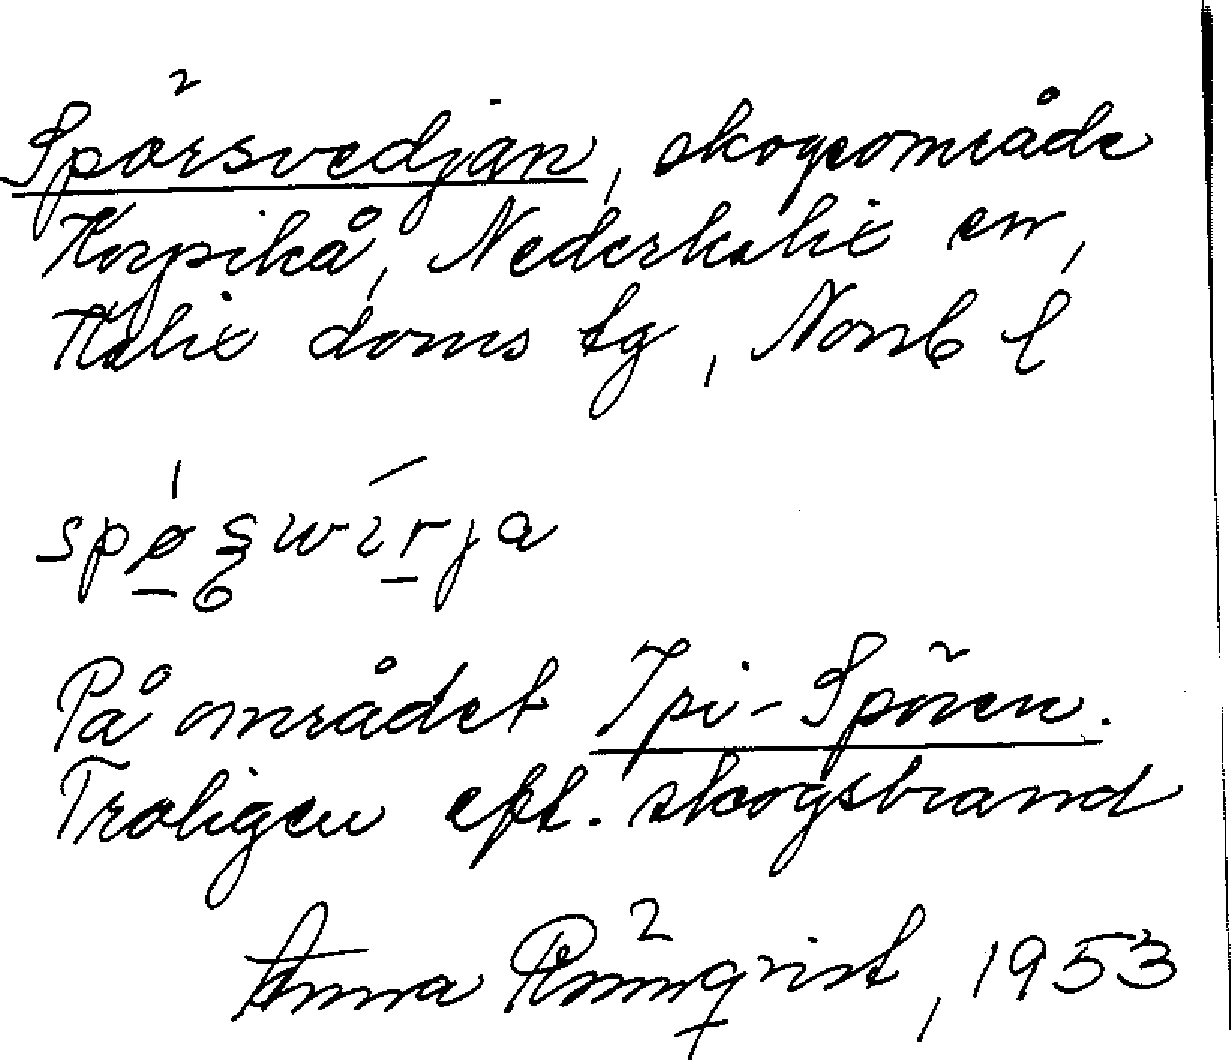 Spörsvedjan, skogsområde
Korpikå, Nederkalix sn,
Kalix doms tg, Norrb l
På området Ipi-Spören.
Troligen eft. skogsbrand
Anna Rönnqvist, 1953